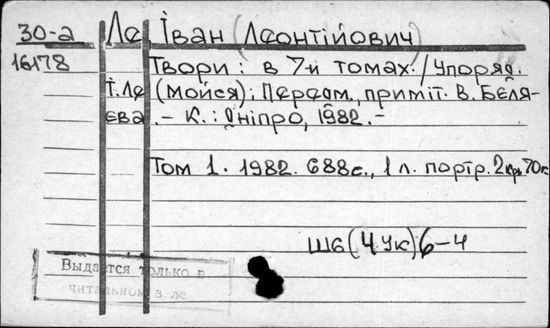 30-а Ле Іван (Леонтійович)
16178 Твори: в 7-и томах./Упоряд.
І.Ле (Мойся); Передм., приміт. В. Бєля-
єва. – К.: Дніпро, 1982. –
Том 1. 1982. 688 с., 1 л. портр. 2 кр. 70 к.
Ш6(4Ук)6-4
Выдается только в
читальном з ле